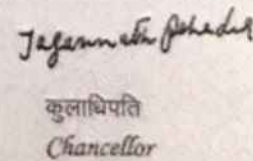 Jagannath Pahadia
कुलाधिपति
Chancellor